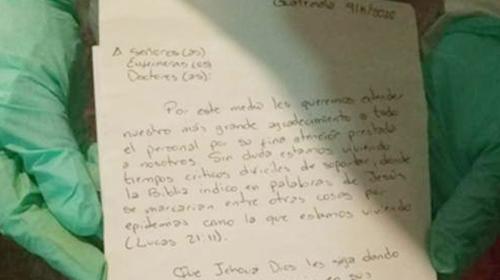 Guatemala 9/11/2020
A Señores (as)
Enfermeras (os)
Doctores (as):
Por este medio les queremos extender
nuestro más grande agradecimiento a todo
el personal por su fina atención prestada
a nosotros. Sin duda estamos viviendo
tiempos críticos difíciles de soportar, donde
la Biblia indico, en palabras de Jesús
se marcarian entre otras cosas por
epidemias como la que estamos viviendo
(Lucas 21:11).
Que Jehová Dios les siga dando
su's